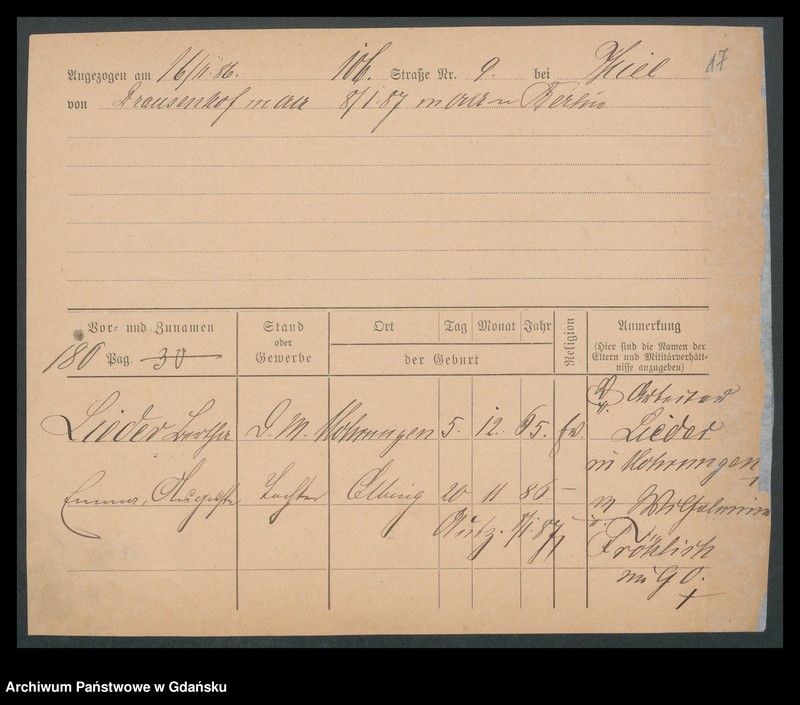 17
Angezogen am 16/11.86. Joh. Straße Nr. 9. bei Thiel
von Drausenhof 8/1.87 Berlin
Vor= und Zunamen Stand oder Gewerbe Ort Tag Monat Jahr der Geburt Religion Anmerkung
(Hier sind die Namen der
Eltern und Militärverhält-
nisse anzugeben)
180 Pag. 30
Arbeiter
Lieder Bertha D. M. Mohrungen 5. 12. 65. Lieder
in Mohrungen
Emma, Auguste Tochter Elbing 20 11 86 – Wilhelmine
Ausz. 8/1.87 Fröhlich
Archiwum Państwowe w Gdańsku